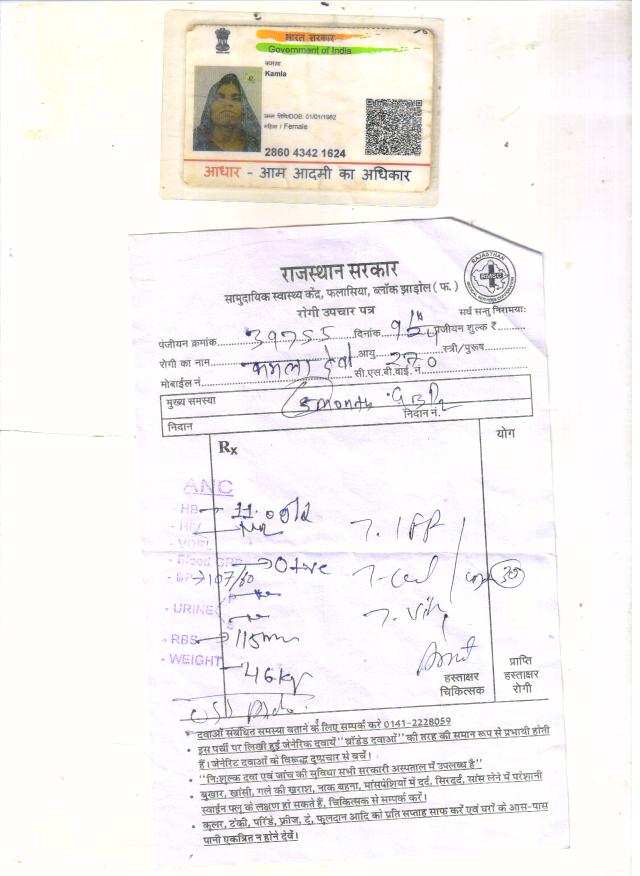 भारत सरकार
Government of India
कमला
Kamla
जन्म तिथि/DOB: 01/01/1982
महिला / Female
2860 4342 1624
आधार - आम आदमी का अधिकार
राजस्थान सरकार
RAJASTHAN
RMSC
सामुदायिक स्वास्थ्य केंद्र, फलासिया, ब्लॉक झाड़ोल ( फ. )
रोगी उपचार पत्र
सर्वे सन्तु निरामया:
पंजीयन क्रमांक 39755 दिनांक पंजीयन शुल्क ₹
रोगी का नाम कमला देवी आयु स्त्री/पुरूष
मोबाईल नं. सी.एस.बी.वाई.नं.
मुख्य समस्या 3 month
निदान निदान नं.
Rx योग
ANC
- HB 11.0
- HIV
- VDRL
- Blood GRP O+ve
- BP 107/60
- URINE
- RBS 115
- WEIGHT 46 kg
30
हस्ताक्षर चिकित्सक
प्राप्ति हस्ताक्षर रोगी
• दवाओं संबंधित समस्या बताने के लिए सम्पर्क करे 0141-2228059
• इस पर्ची पर लिखी हुई जेनेरिक दवायें "ब्रांडेड दवाओं" की तरह की समान रूप से प्रभावी होती
हैं। जेनेरिट दवाओं के विरूद्ध दुष्प्रचार से बचें।
• "नि:शुल्क दवा एवं जांच की सुविधा सभी सरकारी अस्पताल में उपलब्ध है"
• बुखार, खांसी, गले की खराश, नाक बहना, मांसपेशियों में दर्द, सिरदर्द, सांस लेने में परेशानी
स्वाईन फ्लू के लक्षण हो सकते हैं, चिकित्सक से सम्पर्क करें।
• कूलर, टंकी, परिंडे, फ्रीज, ट्रे, फूलदान आदि को प्रति सप्ताह साफ करें एवं घरों के आस-पास
पानी एकत्रित न होने देवें।